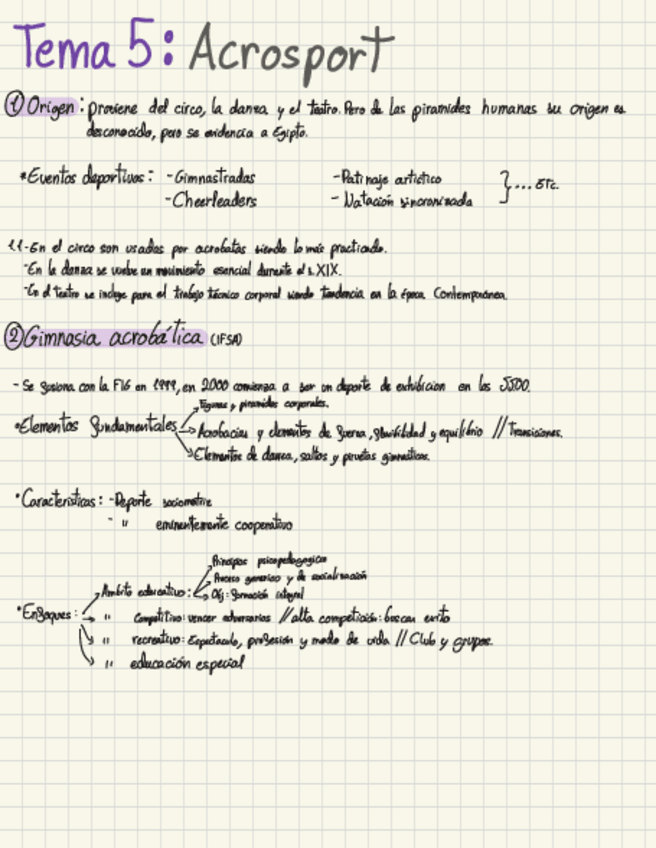 Tema 5: Acrosport
① Origen: proviene del circo, la danza y el teatro. Pero de las piramides humanas su origen es
desconocido, pero se evidencia a Egipto.
*Eventos deportivos: -Gimnastradas -Patinaje artístico }...etc.
-Cheerleaders -Natación sincronizada
1.1-En el circo son usadas por acrobatas siendo lo más practicado.
-En la danza se vuelve un movimiento esencial durante el s.XIX.
-En el teatro se incluye para el trabajo técnico corporal siendo tendencia en la época Contemporánea.
② Gimnasia acrobática (IFSA)
- Se fusiona con la FIG en 1999, en 2000 comienza a ser un deporte de exhibicion en los JJOO.
Figuras y piramides corporales.
•Elementos fundamentales Acrobacias y elementos de fuerza, flexibilidad y equilibrio // Transiciones.
Elementos de danza, saltos y piruetas gimnasticas.
•Características: -Deporte sociomotriz
- " eminentemente cooperativo
Principios psicopedagogicos
Proceso generico y de socialización
Ámbito educativo: Obj: formación integral
•Enfoques: " Competitivo: vencer adversarios // alta competición: buscar exito
" recreativo: Espectaculo, profesión y modo de vida // Club y grupos.
" educación especial